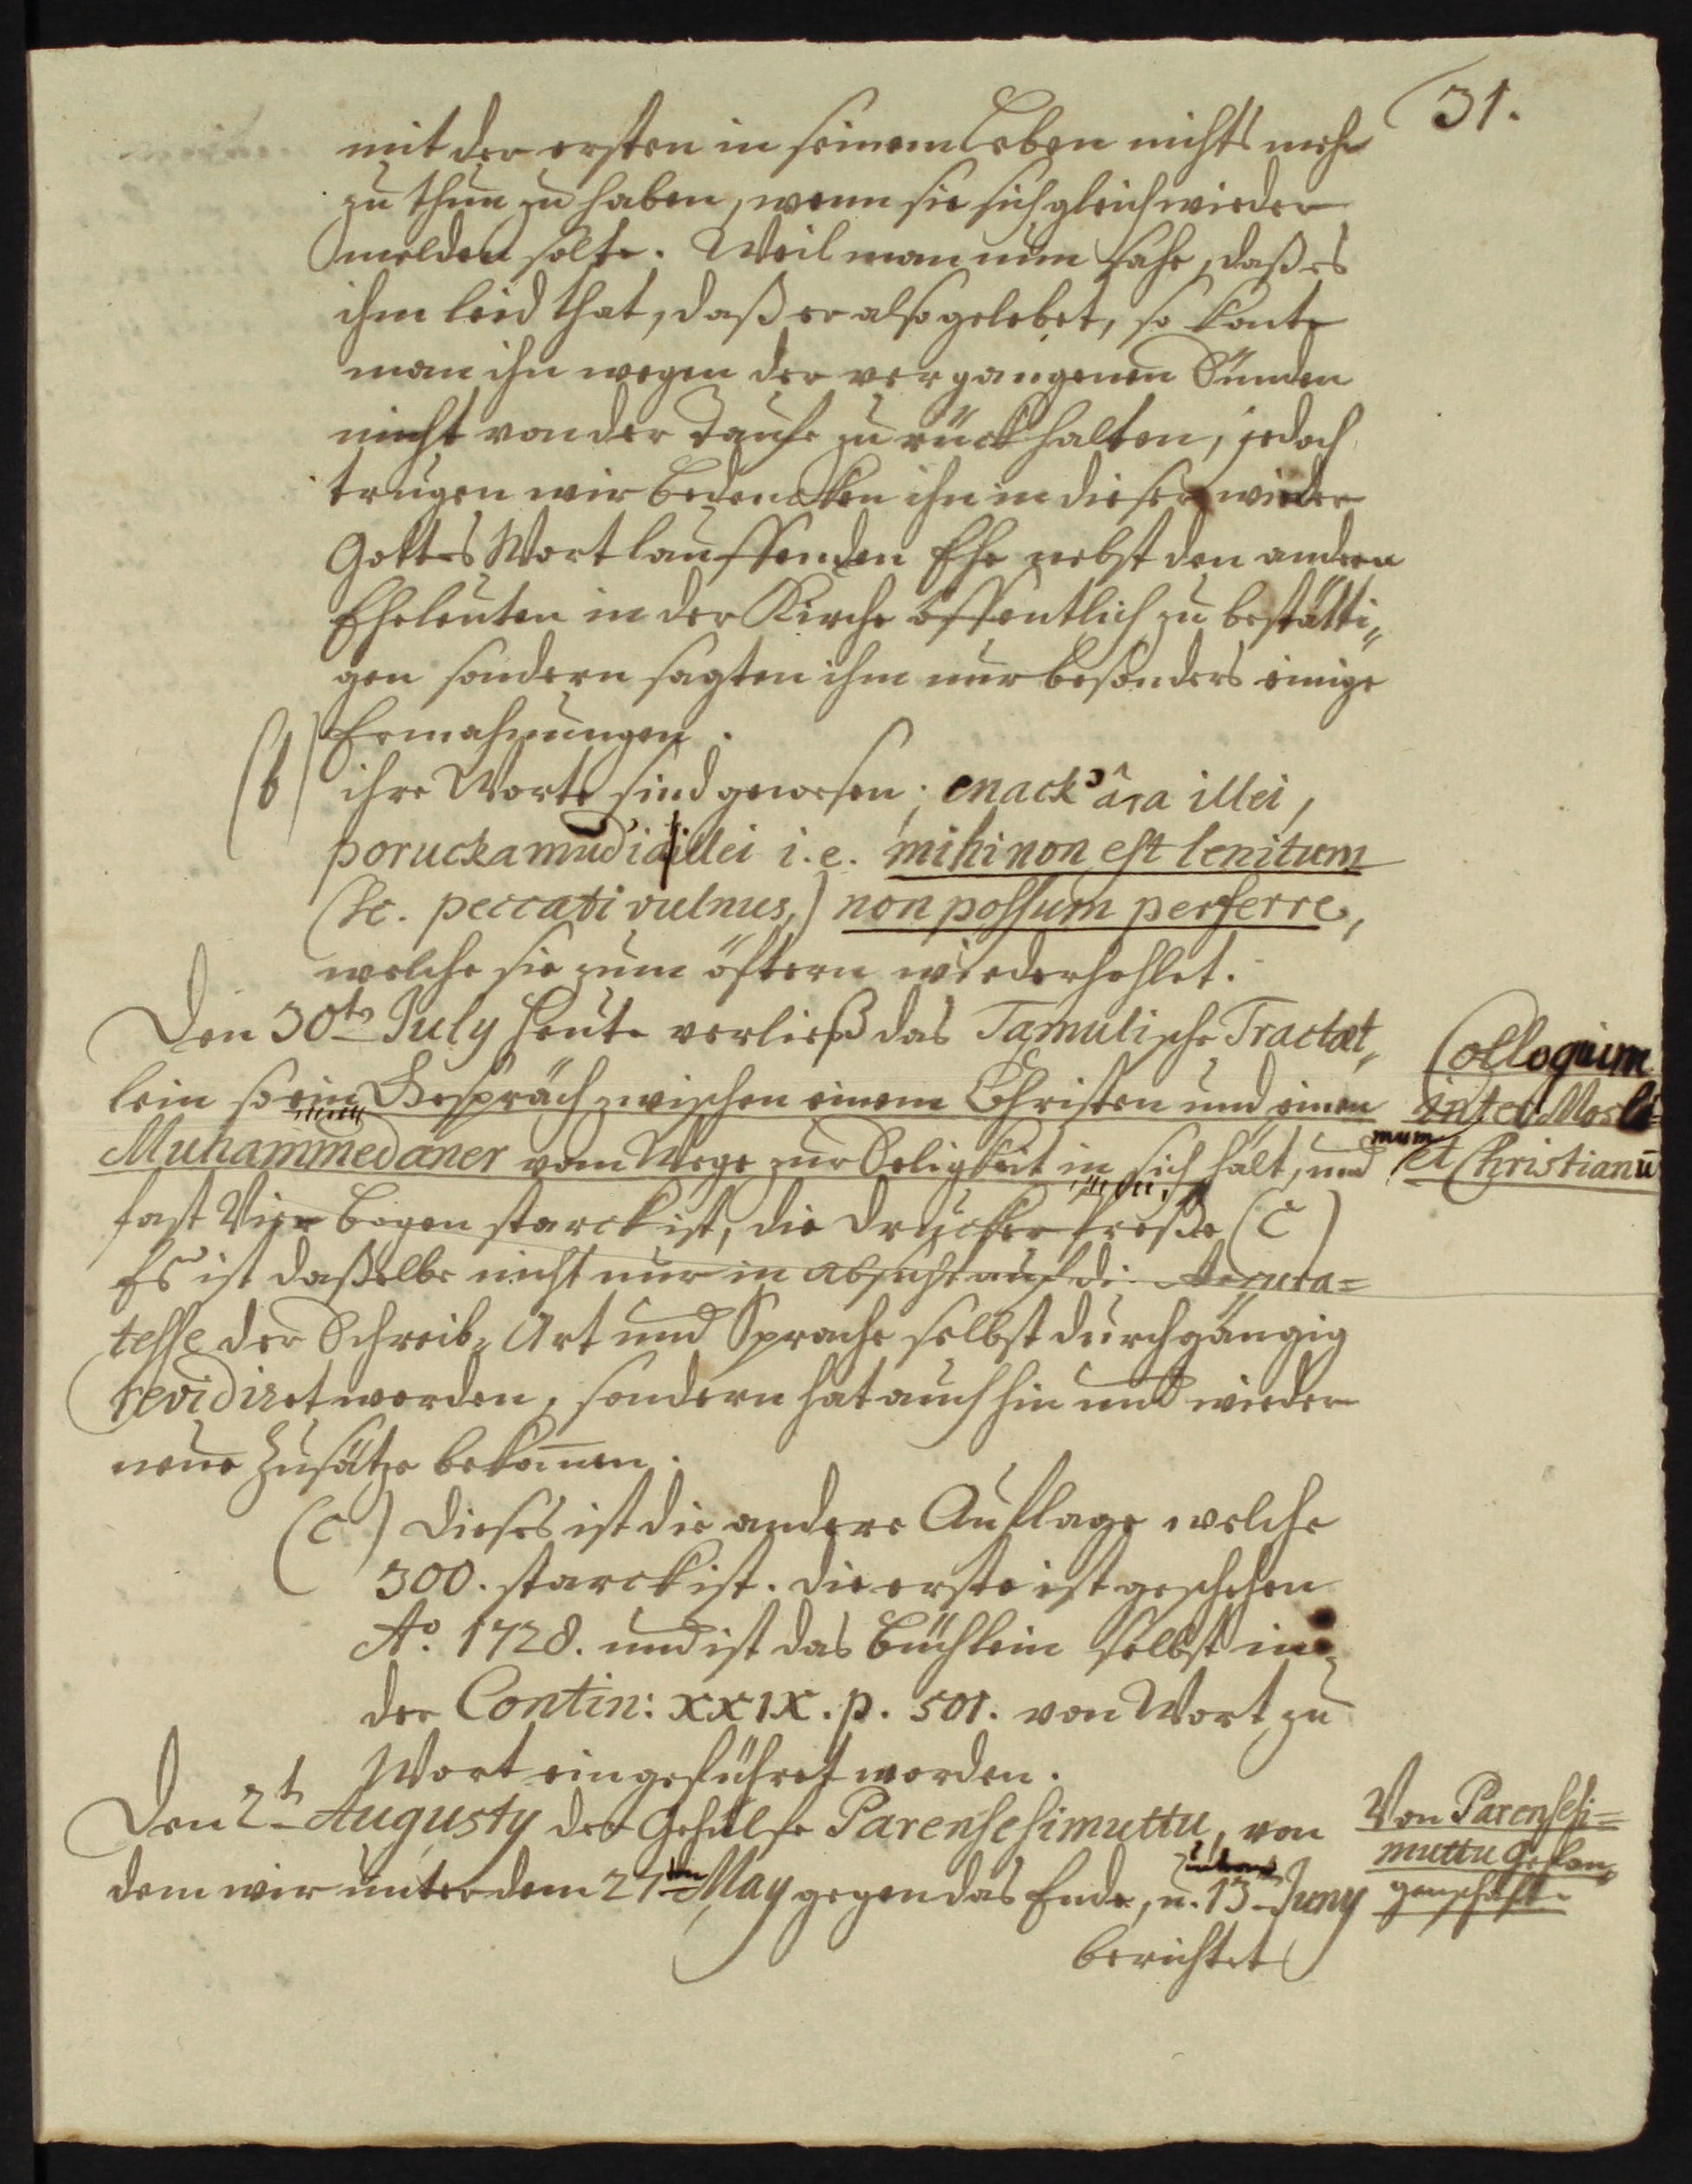 31.
mit der ersten in seinem Leben nichts mehr
zu thun zu haben, wenn sie sich gleich wieder
melden solte. Weil man nun sahe, daß es
ihm leid that, daß er also gelebet, so konte
man ihn wegen der vergangenen Sünden
nicht von der Taufe zurück halten, jedoch
trugen wir Bedencken ihn in dieser wieder
Gottes Wort lauffenden Ehe nebst den andern
Eheleuten in der Kirche öffentlich zu bestätti„
gen sondern sagten ihm nur besonders einige
Ermahnungen.
(b) ihre Worte sind gewesen: enack âra illei,
porucka mudia illei i.e. mihi non est lenitum
(sc. peccati vulnus,) non possum perferre,
welche sie zum öftern wiederhohlet.
Den 30ten July Heute verließ das Tamulische Tractät„
lein so ein Gespräch zwischen einem Christen und einen
Muhammedaner vom Wege zur Seligkeit in sich hält, und
fast Vier Bogen starck ist, die Drucker Preße (c)
Es ist daßelbe nicht nur in Absicht auf die Accura=
tesse der Schreib„Art und Sprache selbst durchgängig
revidiret worden, sondern hat auch hin und wieder
neue Zusätze bekom̄en.
Colloqium
inter Mosle=
mum
et Christianū
(c) Dieses ist die andere Auflage welche
300. starck ist. die erste ist geschehen
Ao. 1728. und ist das Büchlein selbst in
der Contin: XXIX. p. 501. von Wort zu
Wort eingeführet worden.
Den 2t Augusty der Gehülfe Parensesimuttu, von
dem wir unter dem 27ten May gegen das Ende, u. 13 Juny
berichtet
Von Parensesi=
muttu Gefan„
genschaft.